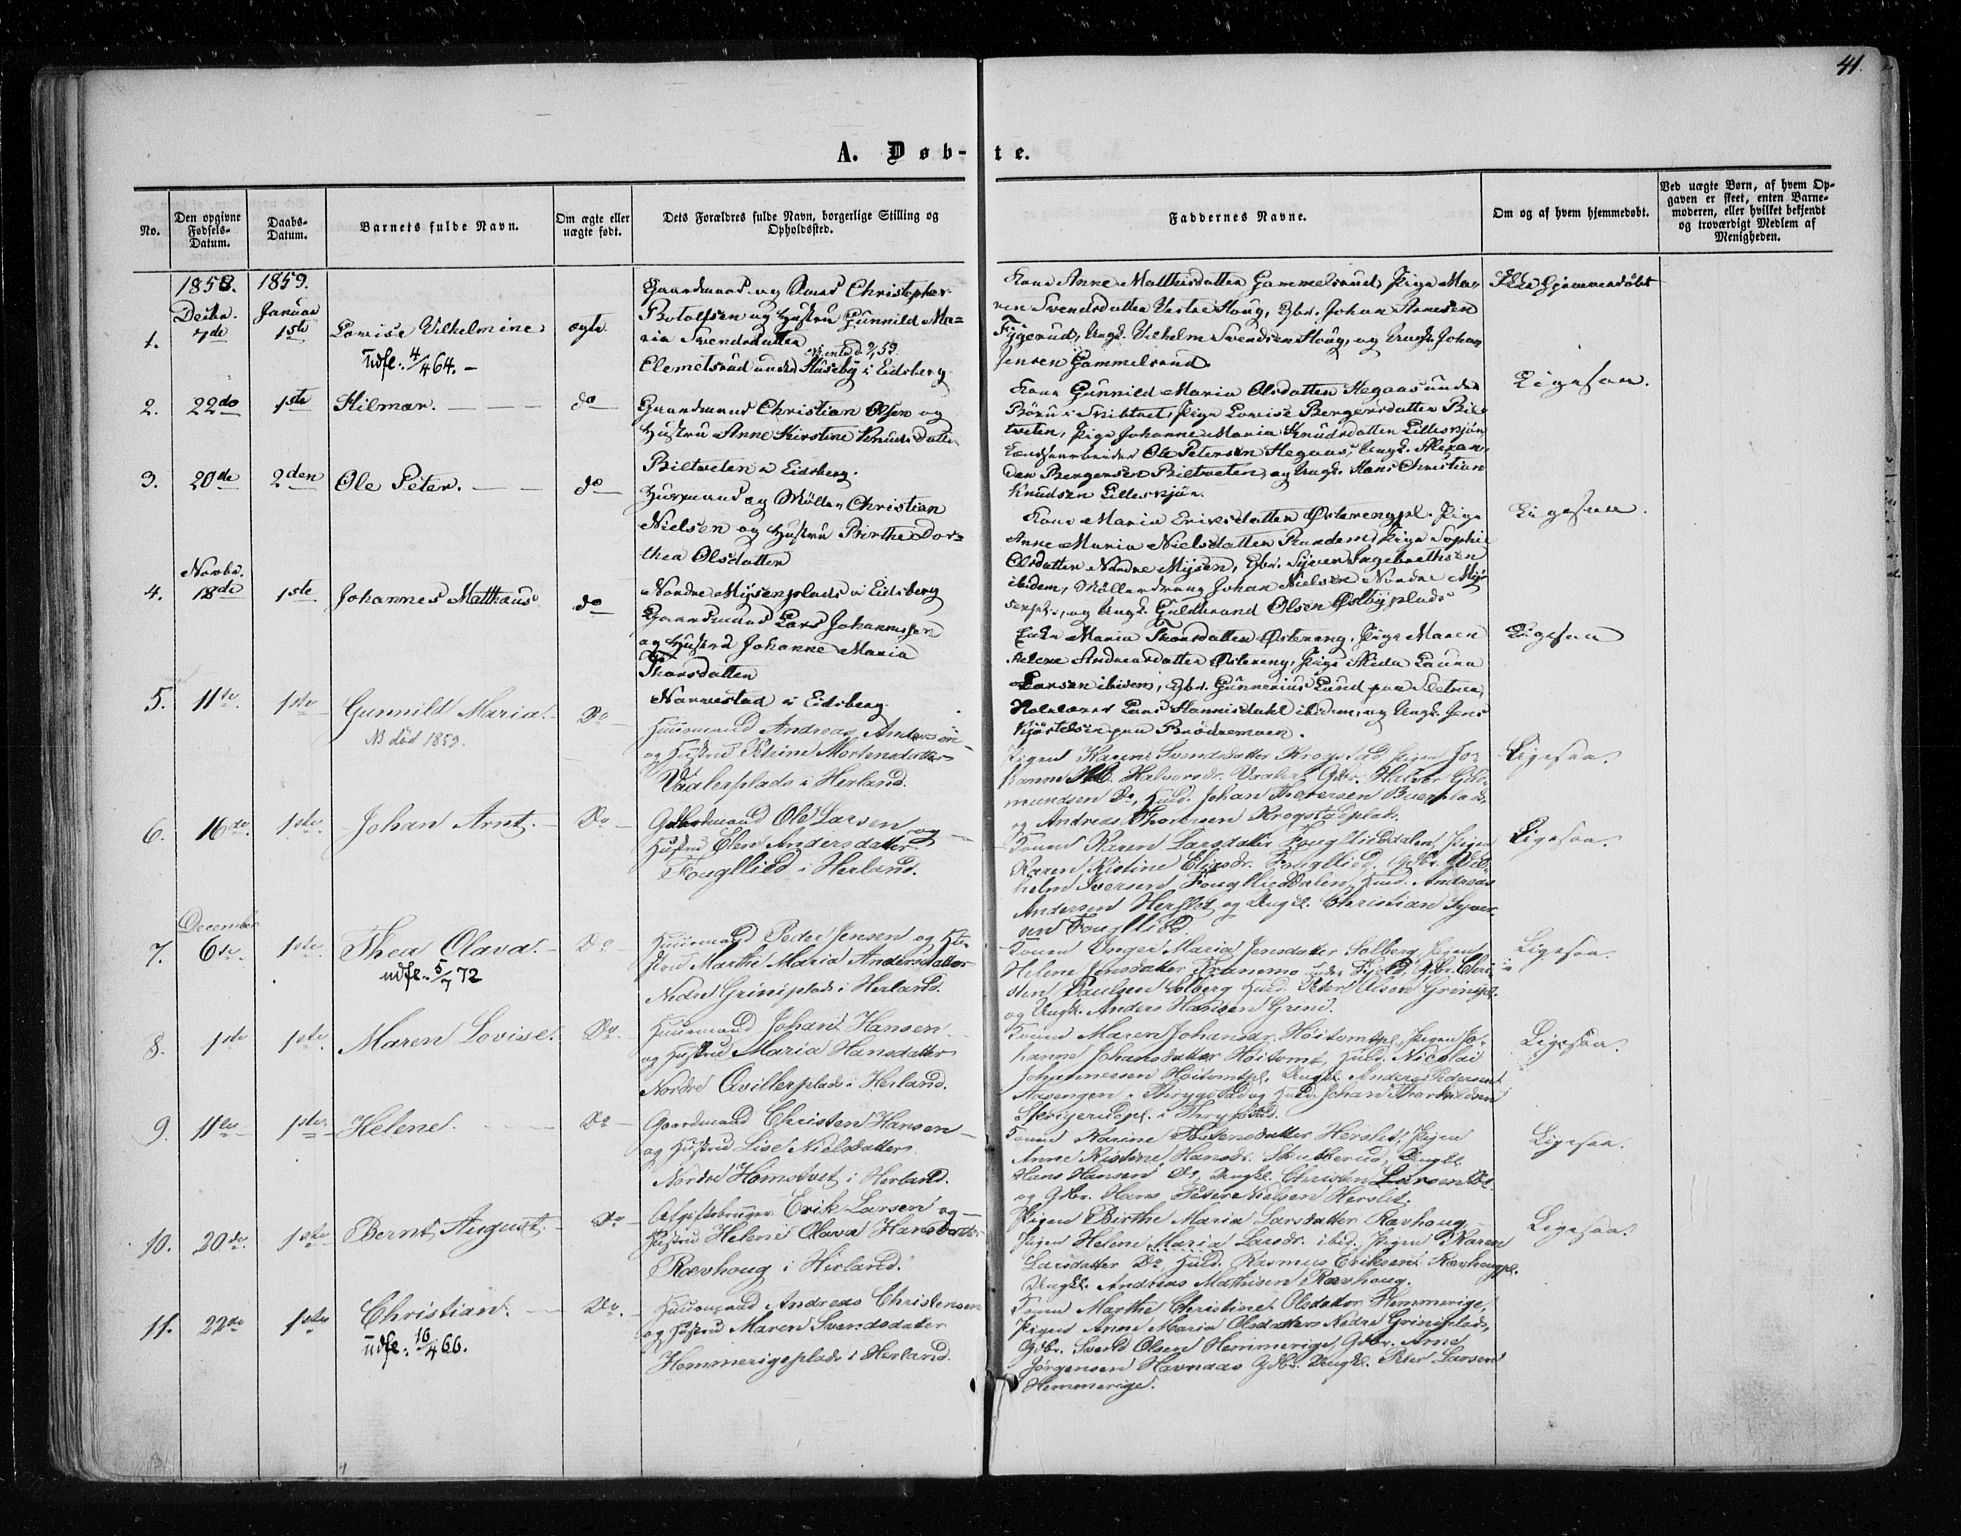 41.
A. Døb-te.
No.
Den opgivne Fødsels-Datum.
Daabs-Datum.
Barnets fulde Navn.
Om ægte eller uægte født.
Dets Forældres fulde Navn, borgerlige Stilling og Opholdssted.
Faddernes Navne.
Om og af hvem hjemmedøbt.
Ved uægte Børn, af hvem Op-
gaven er skeet, enten Barne-
moderen, eller hvilket bekjendt
og troværdigt Medlem af
Menigheden.
1858. 1859.
Decbr. Januar
1. 7de 1ste Lovise Vilhelmine ægte
udfl. 4/4 64. —
Gaardmand og Christopher
og Hustru Gunnild Ma-
ria Svendsdatter
Clemetsrud under Huseby i Eidsberg
Kone Anne Matthisdatter Gammelsrud, Pige Ma-
ren Svendsdatter Vestre Houg, Gbr. Johan Arnesen
Ungk. Vilhelm Svendsen Houg, og Ungk. Johan
Jensen Gammelsrud.
Ikke hjemmedøbt
2. 22de 1ste Hilmar. — — do
Gaardmand Christian Olsen og
Hustru Anne Kirstine Knudsdatter
Biltveten i Eidsberg.
Kone Gunnild Maria Olsdatter Hegaas under
Pige Lovise Bergersdatter Bil-
tveten, Pige Johanne Maria Knudsdatter
Ole Petersen Hegaas, Ungk. Alexan-
der Bergersen Biltveten, og Ungk. Hans Christian
Knudsen
Ligesaa.
3. 20de 2den Ole Peter. — — do
Husmand og Møller Christian
Nielsen og Hustru Birthe Dor-
thea Olsdatter
Nordre Mysenplads i Eidsberg
Kone Maria Eriksdatter Østerengpl. Pige
Anne Maria Nielsdatter Pige Sophie
Olsdatter Nordre Mysen, Gbr. Syver Ingebrethsen
ibidem, Møllerdreng Johan Nielsen Nordre My-
senpl., og Ungk. Guldbrand Olsen Østbyplads
Ligesaa.
Novbr.
4. 18de 1ste Johannes Matthæus do
Gaardmand Lars Johannesen
og Hustru Johanne Maria
Thorsdatter
Nannestad i Eidsberg
Enke Maria Thorsdatter Østereng, Pige Maren
Helene Andreasdatter Østereng, Pige Laura
Larsen ibidem, Gbr. Gunnerius Lund
Lars ibidem og Ungk. Jens
Ligesaa
5. 11te 1ste Gunnild Maria. Do
NB død 1859.
Huusmand Andreas Andersen
og Hustru Mortensdatter
Vaalerplads i Herland.
Pigen Karen Svendsdatter Krogstad, Pigen Jo-
hanne Halvorsdr. Gbr. Halvor Gud-
mundsen Do, Husd. Johan
og Andreas Krogstadplds.
Ligesaa.
6. 16de 1ste Johan Arnt. — Do —
Gaardmand Ole Larsen og
Hustru Elen Andersdatter
Fougllied i Herland.
Konen Karen Larsdatter Fougllieddalen, Pigen
Karen Kistine Eliasdr. Fougllied. Gdbr. Wil-
helm Iversen Fougllieddalen, Husd. Andreas
Andersen Herslet og Ungk. Christian Syver-
sen Fougllied.
Ligesaa.
December
7. 6te 1ste Thea Olava. — Do —
udfl. 5/7 72
Huusmand Peder Jensen og Hu-
stru Marthe Maria Andersdatter
Nedre Griniplads i Herland.
Konen Inger Maria Jensdatter Solberg, Pigen
Helene Jensdatter Gdbr. Chri-
sten Paulsen Solberg Husd. Peder Olsen Grinipl.
og Ungk. Anders Hansen Grini.
Ligesaa.
8. 1ste 1ste Maren Lovise. Do
Huusmand Johan Hansen
og Hustru Maria Hansdatter
Nordre Qvillerplads i Herland.
Konen Maren Johansdr. Høitomtpl., Pigen Jo-
hanne Johansdatter Høitomt, Husd. Nicolai
Johannessen Høitomtpl. Ungkl. Anders Pedersen
Aasengen i Thrygstad og Husd. Johan Thorkildsen
i Thrygstad.
Ligesaa.
9. 11te 1ste Helene. — Do —
Gaardmand Christen Hansen
og Hustru Lise Nielsdatter
Nordre Homstvet i Herland.
Konen Karine Herslet, Pigen
Anne Kistine Hansdr. Skutterud, Ungkl.
Hans Hansen Do, Ungkl. Christen Larsen Do
og Gdbr. Hans Peter Nielsen Herslet.
Ligesaa.
10. 20de 1ste Bernt August. — Do —
Afgiftsbruger Erik Larsen og
Hustru Helene Olava Hansdatter
Rævhoug i Herland.
Pigen Birthe Maria Larsdatter Rævhoug
Pigen Helene Maria Larsdr. ibid. Pigen Karen
Larsdatter Do, Husd. Rasmus Eriksen Rævhougpl.
Ungkl. Andreas Mathisen Rævhoug.
Ligesaa.
11. 22de 1ste Christian. — Do.
udfl. 16/4 66.
Huusmand Andreas Christensen
og Hustru Maren Svendsdatter
Hemmerigeplads i Herland.
Konen Marthe Christine Olsdatter Hemmerige,
Pigen Anne Maria Olsdatter Nedre Griniplads,
Gdbr. Svend Olsen Hemmerige, Gdbr. Arne
Jørgensen Havnaas Gdbr. Ungkl. Peter Larsen
Hemmerige.